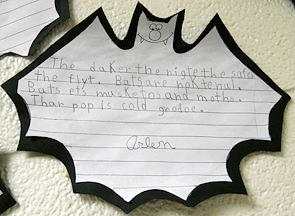 The darker the nigte the safer
the flyt. Bats are noktenul.
Bats ets musketos and moths.
Thar pop is cold gooloe.
Arlen